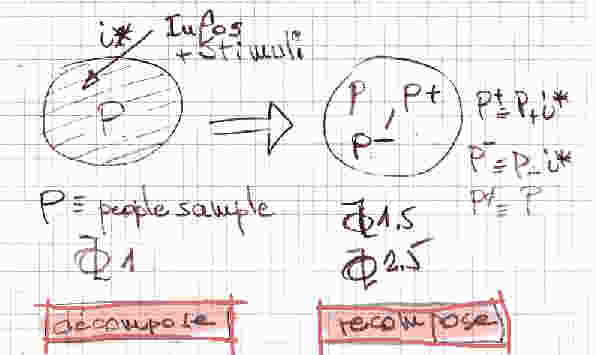 i* Infos
+ Stimuli
P
P P+
P-
P+ ≡ P+i*
P- ≡ P-i*
P± ≡ P
P ≡ people sample
1
1.5
2.5
decompose
recompose